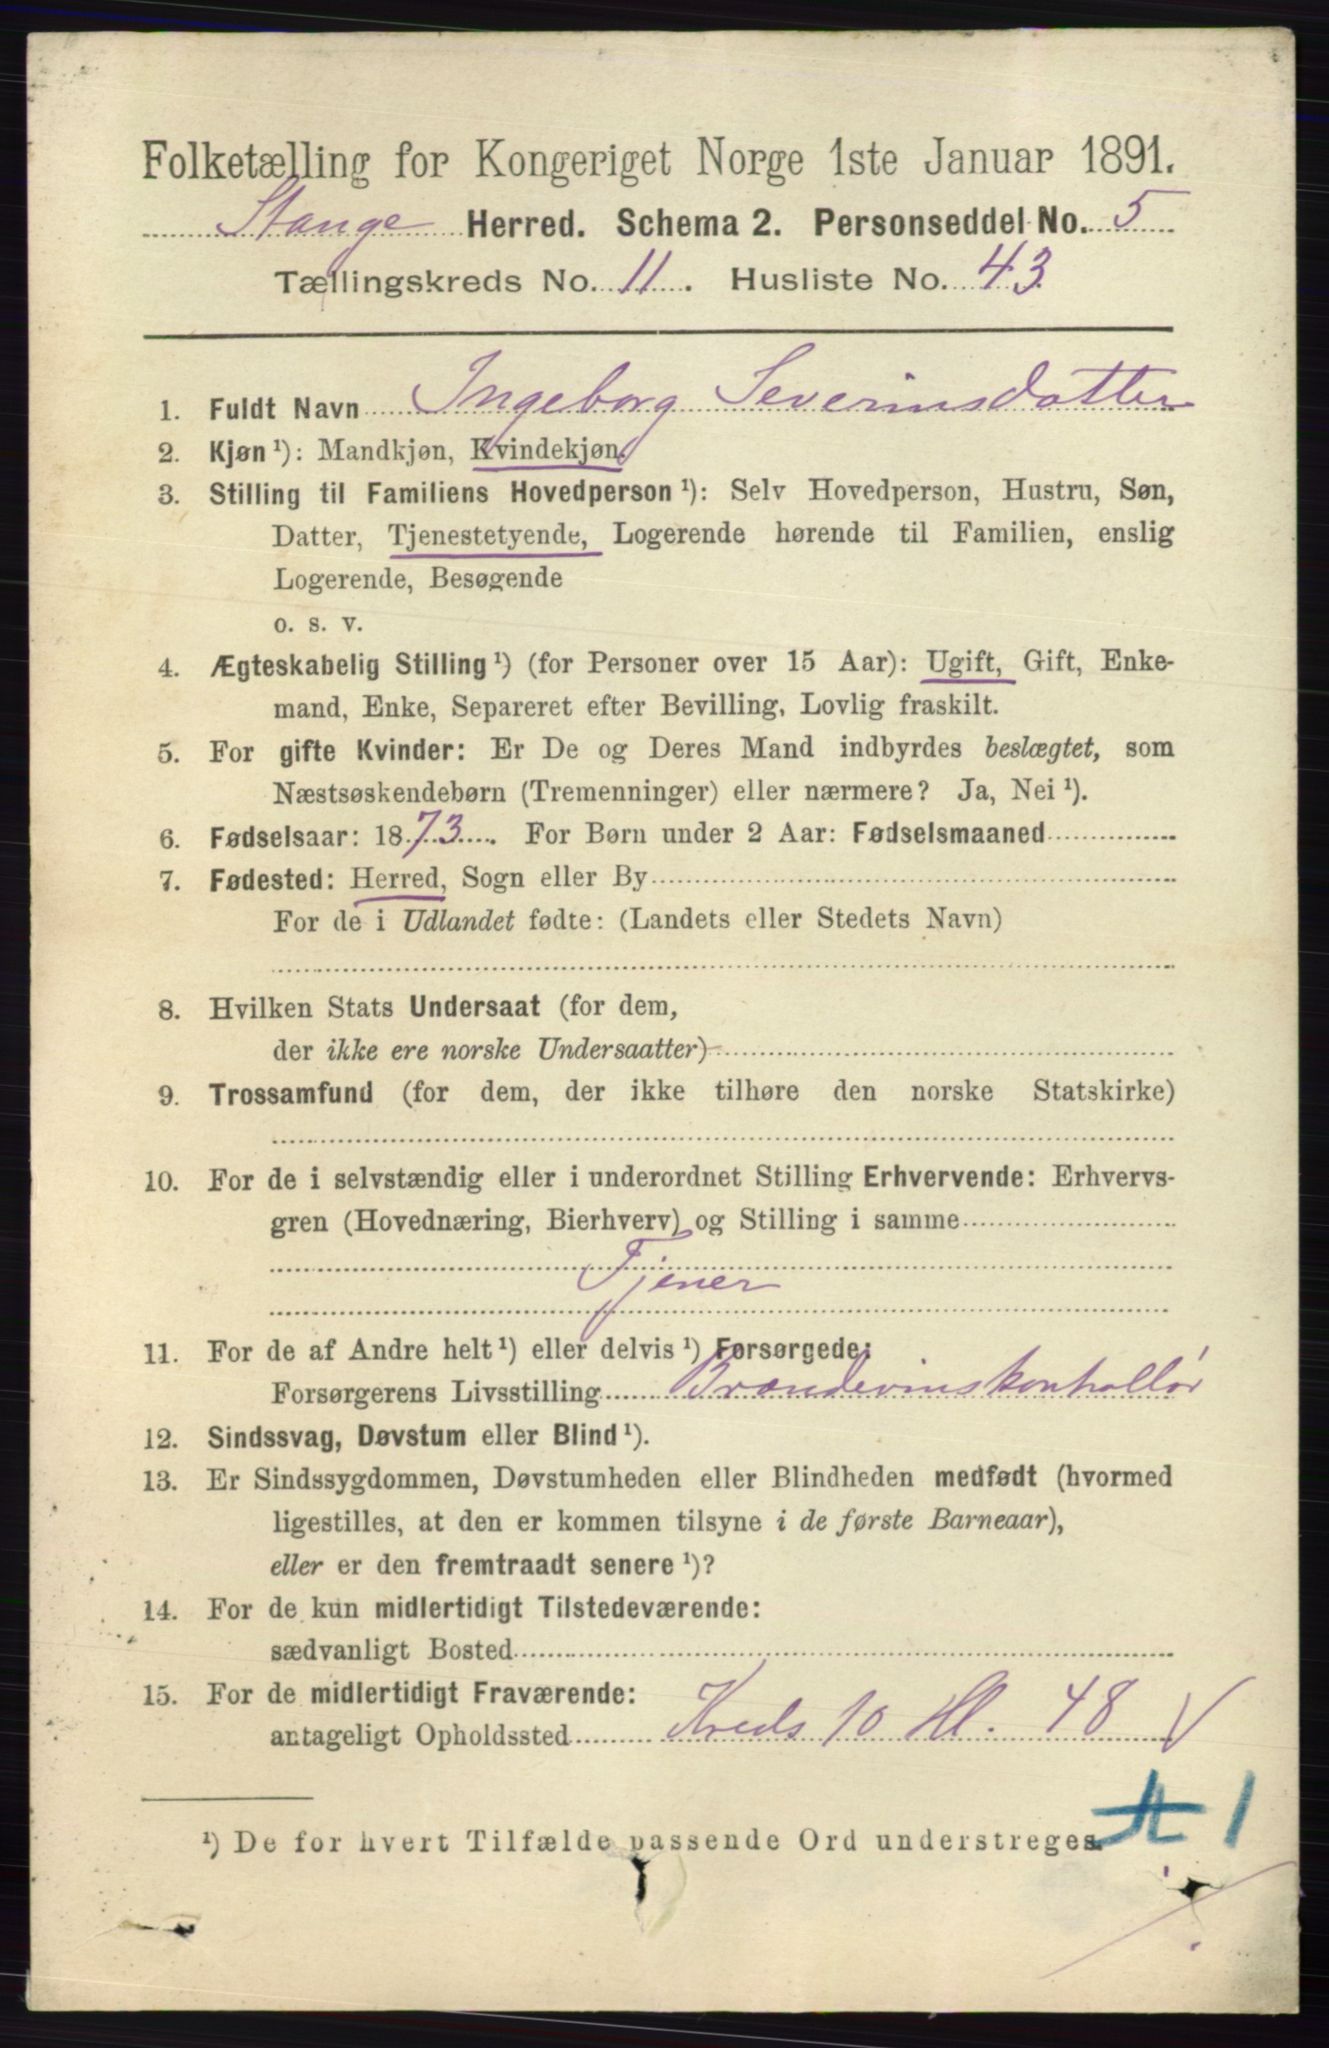 Folketælling for Kongeriget Norge 1ste Januar 1891.
Stange Herred. Schema 2. Personseddel No. 5
Tællingskreds No. 11. Husliste No. 43
1. Fuldt Navn Ingeborg Severinsdatter
2. Kjøn ¹): Mandkjøn, Kvindekjøn.
3. Stilling til Familiens Hovedperson ¹): Selv Hovedperson, Hustru, Søn,
Datter, Tjenestetyende, Logerende hørende til Familien, enslig
Logerende, Besøgende
o. s. v.
4. Ægteskabelig Stilling ¹) (for Personer over 15 Aar): Ugift, Gift, Enke-
mand, Enke, Separeret efter Bevilling, Lovlig fraskilt.
5. For gifte Kvinder: Er De og Deres Mand indbyrdes beslægtet, som
Næstsøskendebørn (Tremenninger) eller nærmere? Ja, Nei ¹).
6. Fødselsaar: 1873. For Børn under 2 Aar: Fødselsmaaned
7. Fødested: Herred, Sogn eller By
For de i Udlandet fødte: (Landets eller Stedets Navn)
8. Hvilken Stats Undersaat (for dem,
der ikke ere norske Undersaatter)
9. Trossamfund (for dem, der ikke tilhøre den norske Statskirke)
10. For de i selvstændig eller i underordnet Stilling Erhvervende: Erhvervs-
gren (Hovednæring, Bierhverv) og Stilling i samme
Tjener
11. For de af Andre helt ¹) eller delvis ¹) Forsørgede:
Forsørgerens Livsstilling Brændevinskontrollør
12. Sindssvag, Døvstum eller Blind ¹).
13. Er Sindssygdommen, Døvstumheden eller Blindheden medfødt (hvormed
ligestilles, at den er kommen tilsyne i de første Barneaar),
eller er den fremtraadt senere ¹)?
14. For de kun midlertidigt Tilstedeværende:
sædvanligt Bosted
15. For de midlertidigt Fraværende:
antageligt Opholdssted Kreds 10 Hl. 48 V
¹) De for hvert Tilfælde passende Ord understreges.